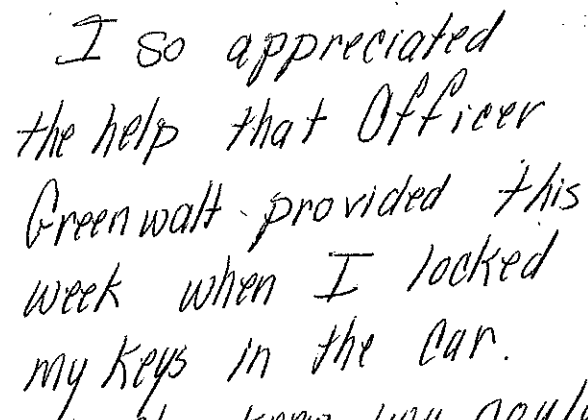 I so appreciated
the help that Officer
Greenwalt provided this
week when I locked
my keys in the car.